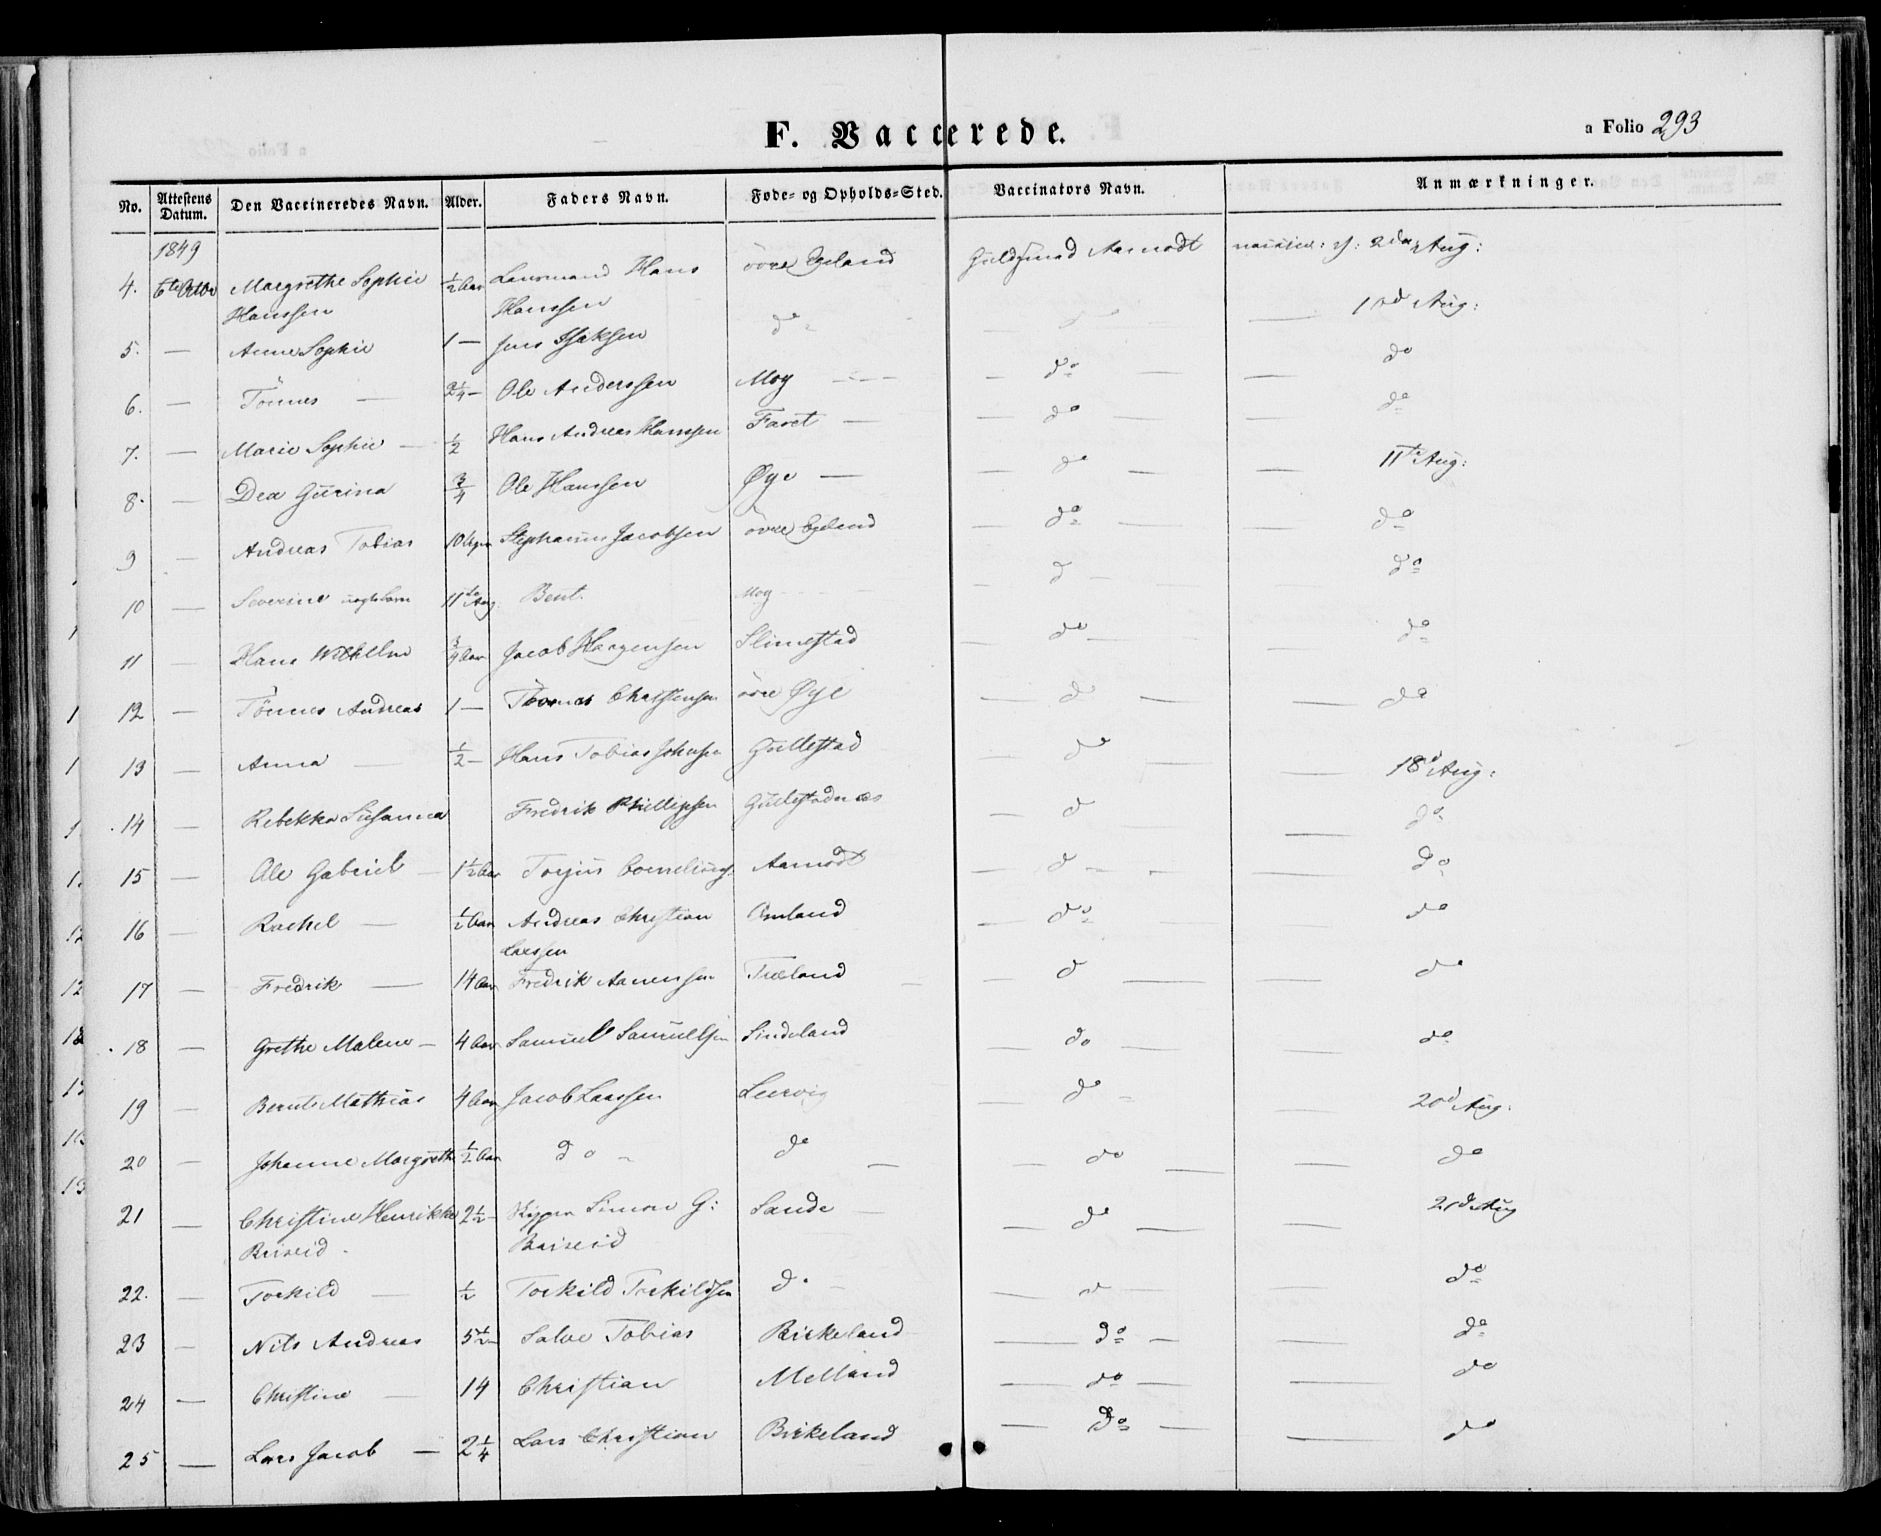 F. Vaccerede.
a Folio 293
No. Attestens Datum. Den Vaccineredes Navn. Alder. Faders Navn. Føde- og Opholds-Sted. Vaccinators Navn. Anmærkninger.
1849
4. Margrethe Sophie ½ Aar Hans øvre Egeland Aamodt Aug:
Hanssen Hanssen
5. — Anne Sophie 1 — Jens Isaksen do 1 Aug:
6. — Tönnes — 2¼ — Ole Anderssen Moy — do — — do
7. — Marie Sophie — ½ Hans Andreas Hanssen Faret — — do — — do
8. — Dea Gurina ¾ Ole Hanssen Øye — — do — — 11te Aug:
9 — Andreas Tobias 10 Stephanus Jacobsen øvre Egeland — do — — do
10 — Severine 11 Bent. Moy — d — — do
11 — Hans Wilhelm ¾ Aar Jacob Slimestad — do — — do
12 — Tönnes Andreas 1 — Tönnes Christensen øvre Øye — d — — do
13 — Anna — ½ — Hans Tobias Johnsen Gullestad — do — — 18d Aug:
14 — Rebekka Susanna Fredrik Phillipsen Gullestadnæs — d — — do
15 — Ole Gabriel — 1½ Aar Torjus Corneliuss: Aamodt — d — — do
16 — Rachel — ½ Aar Andreas Christian Omland — do — — do
Larssen
17 — Fredrik — 14 Aar Fredrik Aanenssen Træland — d — — do
18 — Grethe Malene — 4 Aar Samuel Samuelsen Sindeland — do — — do
19 — Bernt Mathias 4 Aar Jacob Larssen Leervig — do — — 20d Aug:
20 — Johanne Margrethe ½ Aar do do — — do — — do
21 — Christine Henrikke 2½ — Simon G: Sande — — do — — 21d Aug
Briseid Briseid
22. — Torkild — ½ Torkild Torkildsen do — — d — — do
23 — Nils Andreas 5½ — Salve Tobias Birkeland — do — — do
24 — Christine — 14 Christian Melland — do — — do
25 — Lars Jacob — 2¼ Lars Christian Birkeland — do — — do